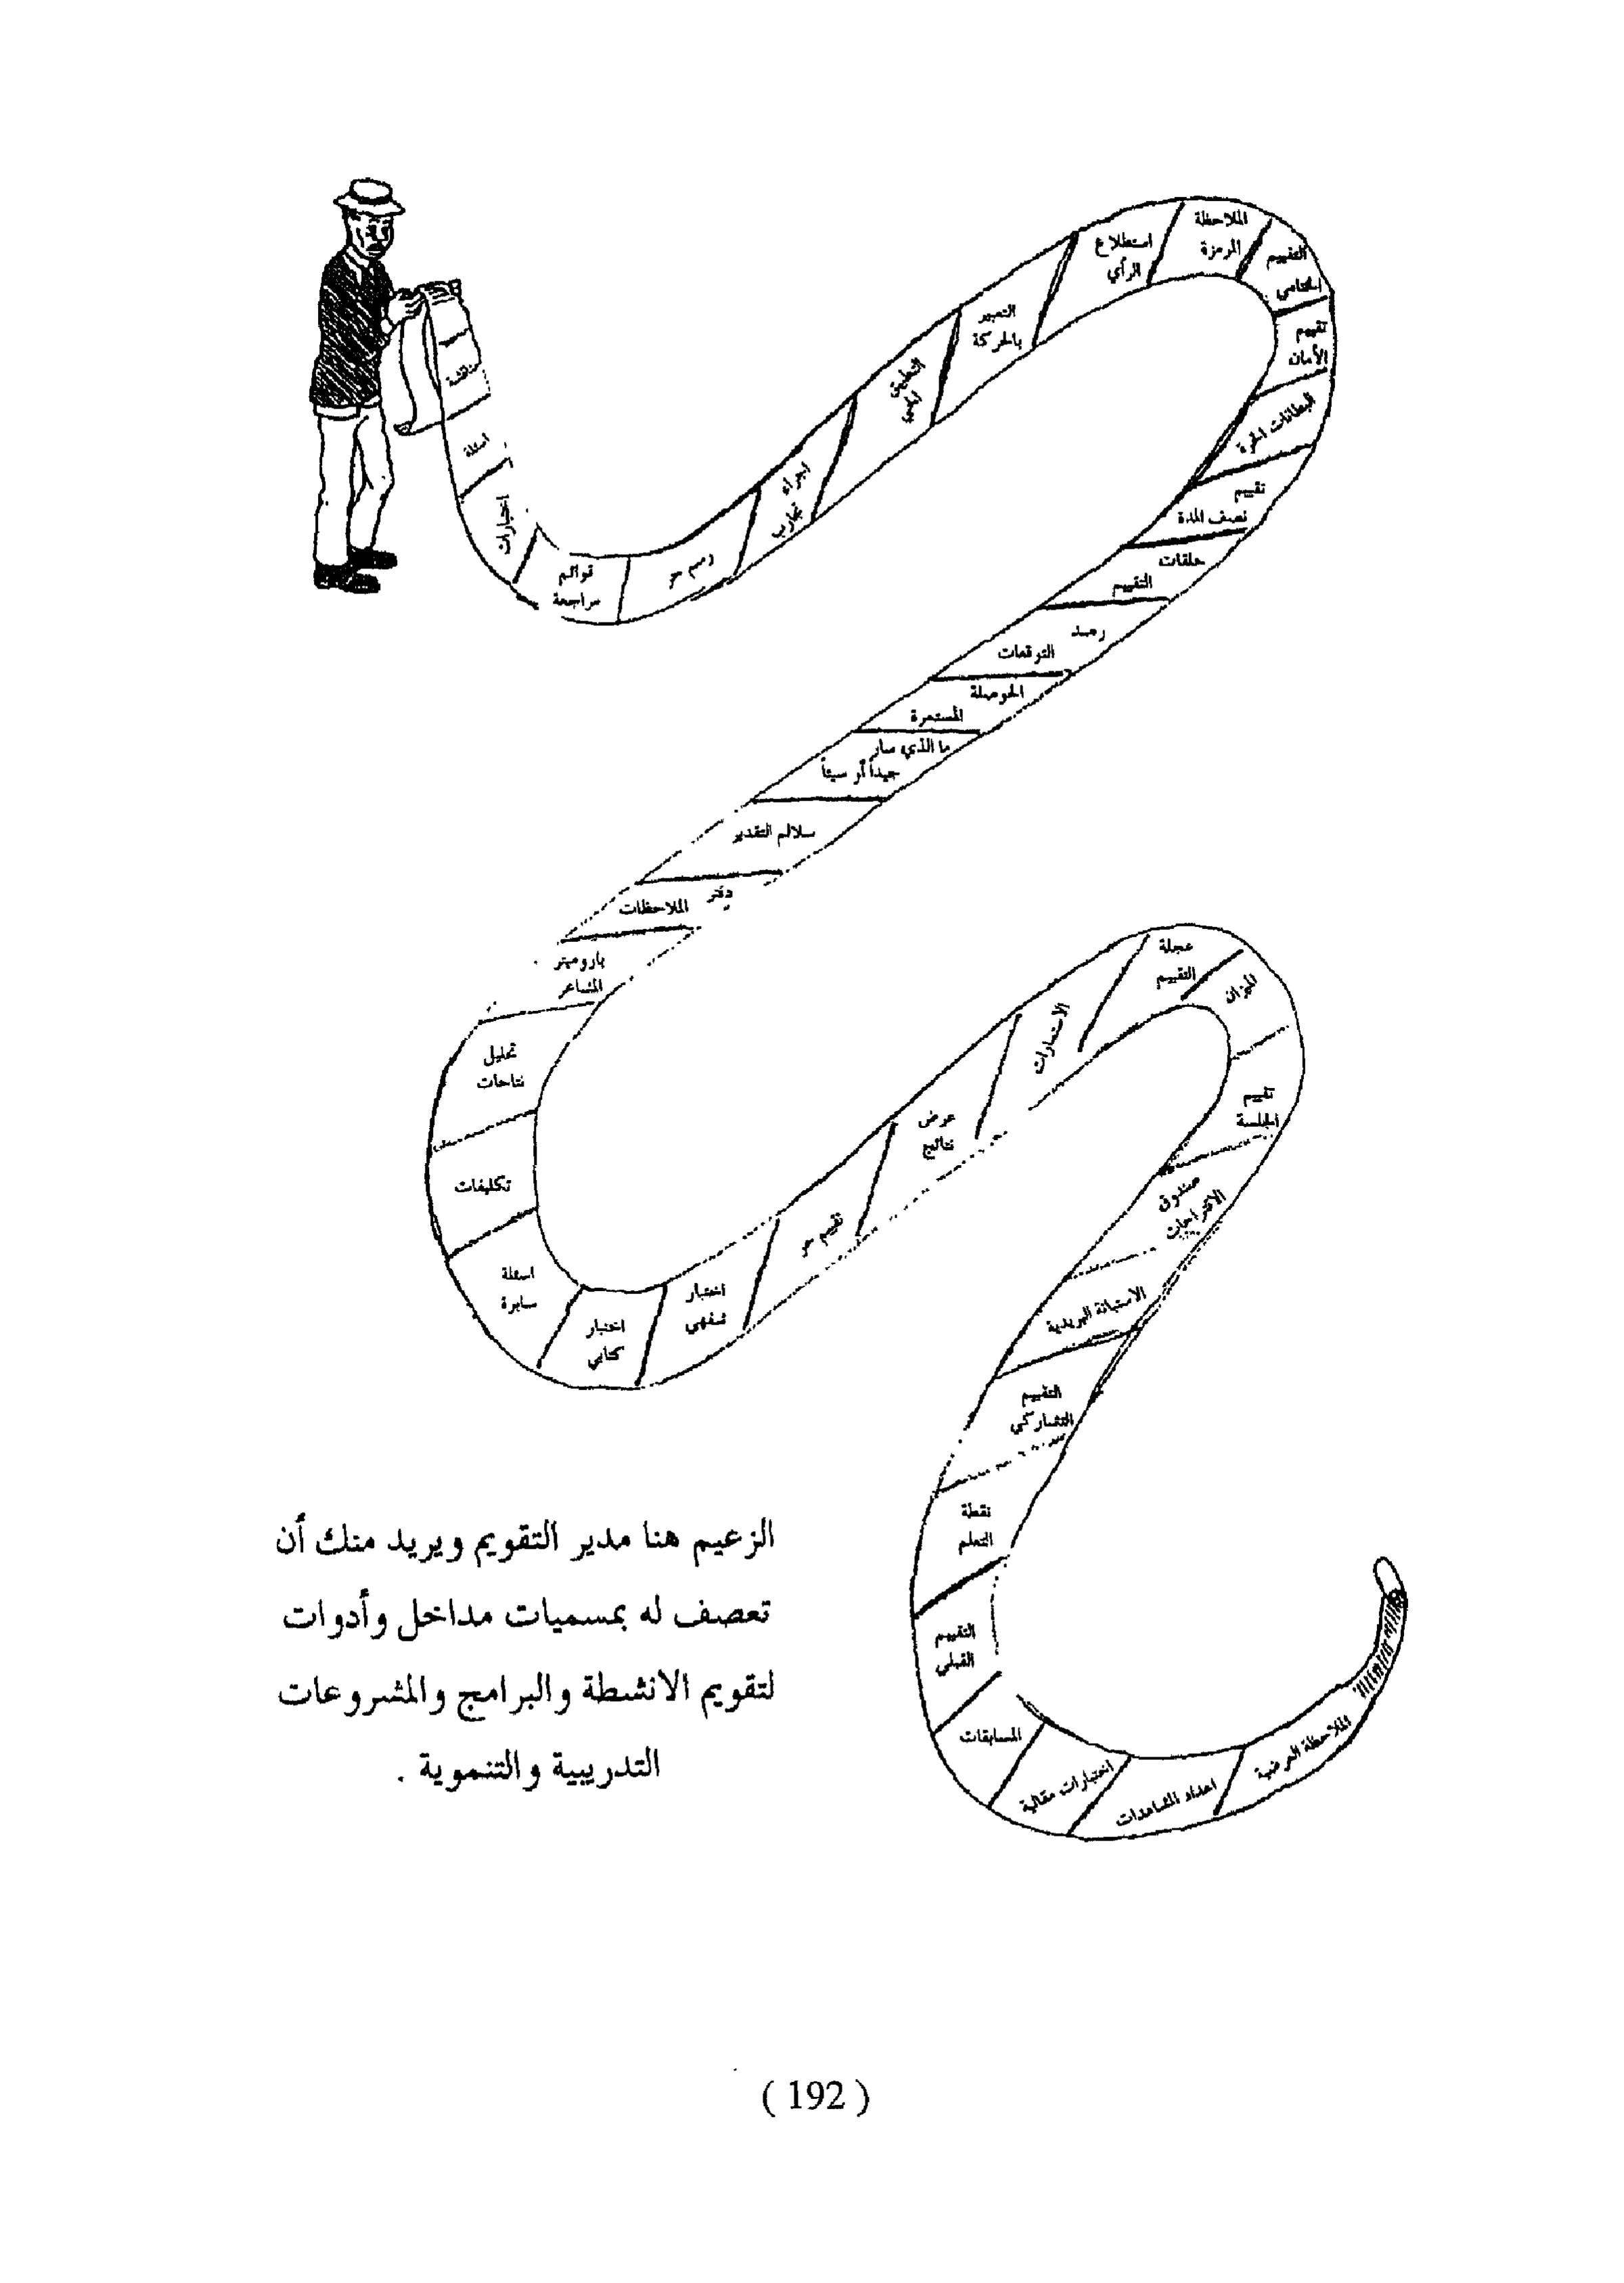 مناقشة
اسئلة
اختبارات
قوائم
مراجعة
رسم حر
اجراء
تجارب
التطبيق
استطلاع
الرأي
التعبير
بالحركة
الملاحظة
المرمزة
التقييم
الختامي
تقييم
الأمان
البطاقات الحرة
تقييم
نصف المدة
حلقات
التقييم
رصد
التوقعات
الحوصلة
المستمرة
ما الذي سار
جيداً أو سيئاً
سلالم التقدير
دفتر
الملاحظات
بارومتر
المشاعر
تحليل
نتاجات
تكليفات
اسئلة
سابرة
اختبار
كتابي
اختبار
شفهي
تقييم حر
عرض
نتائج
الاستمارات
عجلة
التقييم
الميزان
تقييم
الجلسة
صندوق
الاقتراحات
الاستبانة البريدية
التقييم
التشاركي
نقطة
التعلم
التقييم
القبلي
المسابقات
اختبارات مقالية
اعداد المشاهدات
الملاحظة العرضية
الزعيم هنا مدير التقويم ويريد منك أن
تعصف له بمسميات مداخل وأدوات
لتقويم الانشطة والبرامج والمشروعات
التدريبية والتنموية .
( 192 )